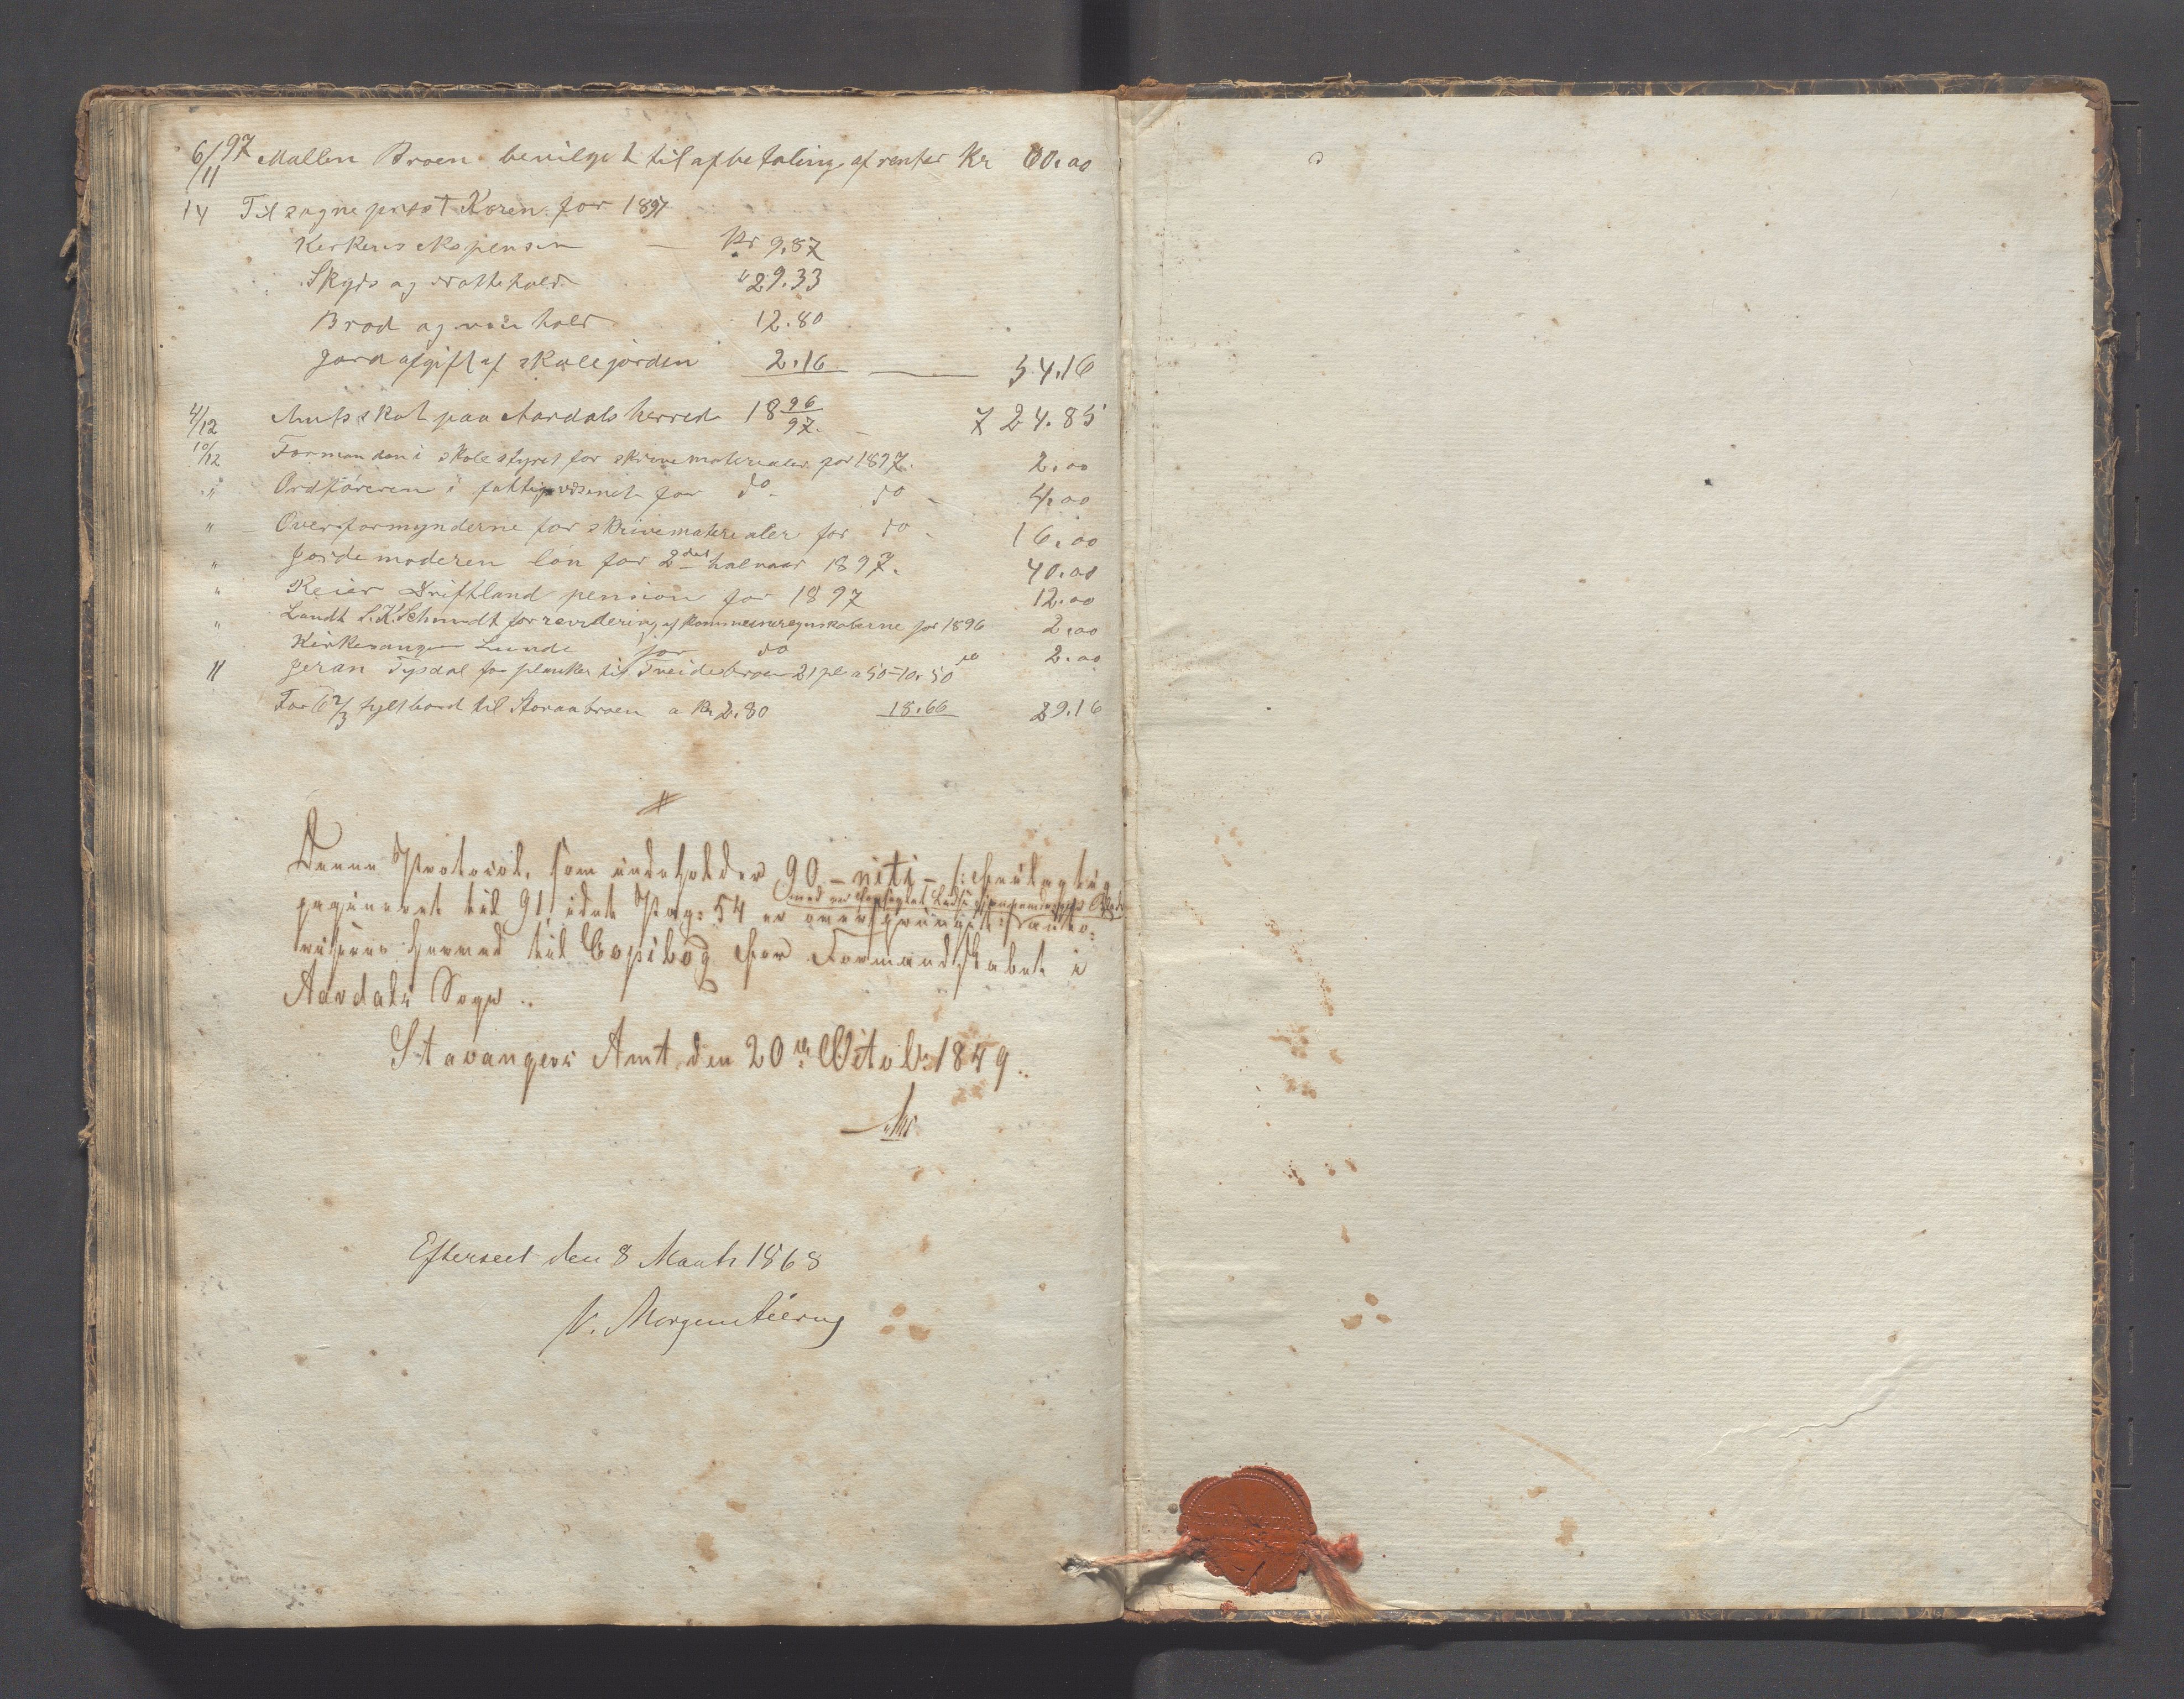 6/11 97 Mallen Broen bevilget til afbetaling af renter Kr 60.00
14 Til sogneprest Koren for 1897
Kirkens ekspenser — Kr 9.87
Skyds og hold " 29.33
Brød og vin hold 12.80
Jordafgift af skolejorden 2.16 — 54.16
4/12 Amtsskat paa Aardals herred 18 96/97 - 724.85
10/12 Formanden i skolestyret for skrivematerialer for 1897. 2.00
" Ordføreren i fattigvæsenet for do - do - 4.00
" Overformynderne for skrivematerialer for do - 16.00
" Jordemoderen løn for 2det halvaar 1897. 40.00
" Reier Driftland pension for 1897 12.00
" Landh S. K. Schmidt for revidering af kommuneregnskaberne for 1896 2.00
Kirkesanger Lunde for do 2.00
" Jeran Tysdal for planker til Tveidebroen 21 pl a 50 - 10.50
For 6 2/3 tylt bord til Storaabroen a Kr 2.80 18.66 29.16
Denne Protocol, som indeholder 90 - niti - /: feilagtig
pagineret til 91, idet Pag: 54 er oversprunget :/ autho-
med en forseglet Snor gjennemdragne Blade
riseres herved til Copibog for Formandskabet i
Aardals Sogn..
Stavangers Amt den 20de Octobr 1849..
Efterseet den 8 Marts 1868
N. Morgenstierne